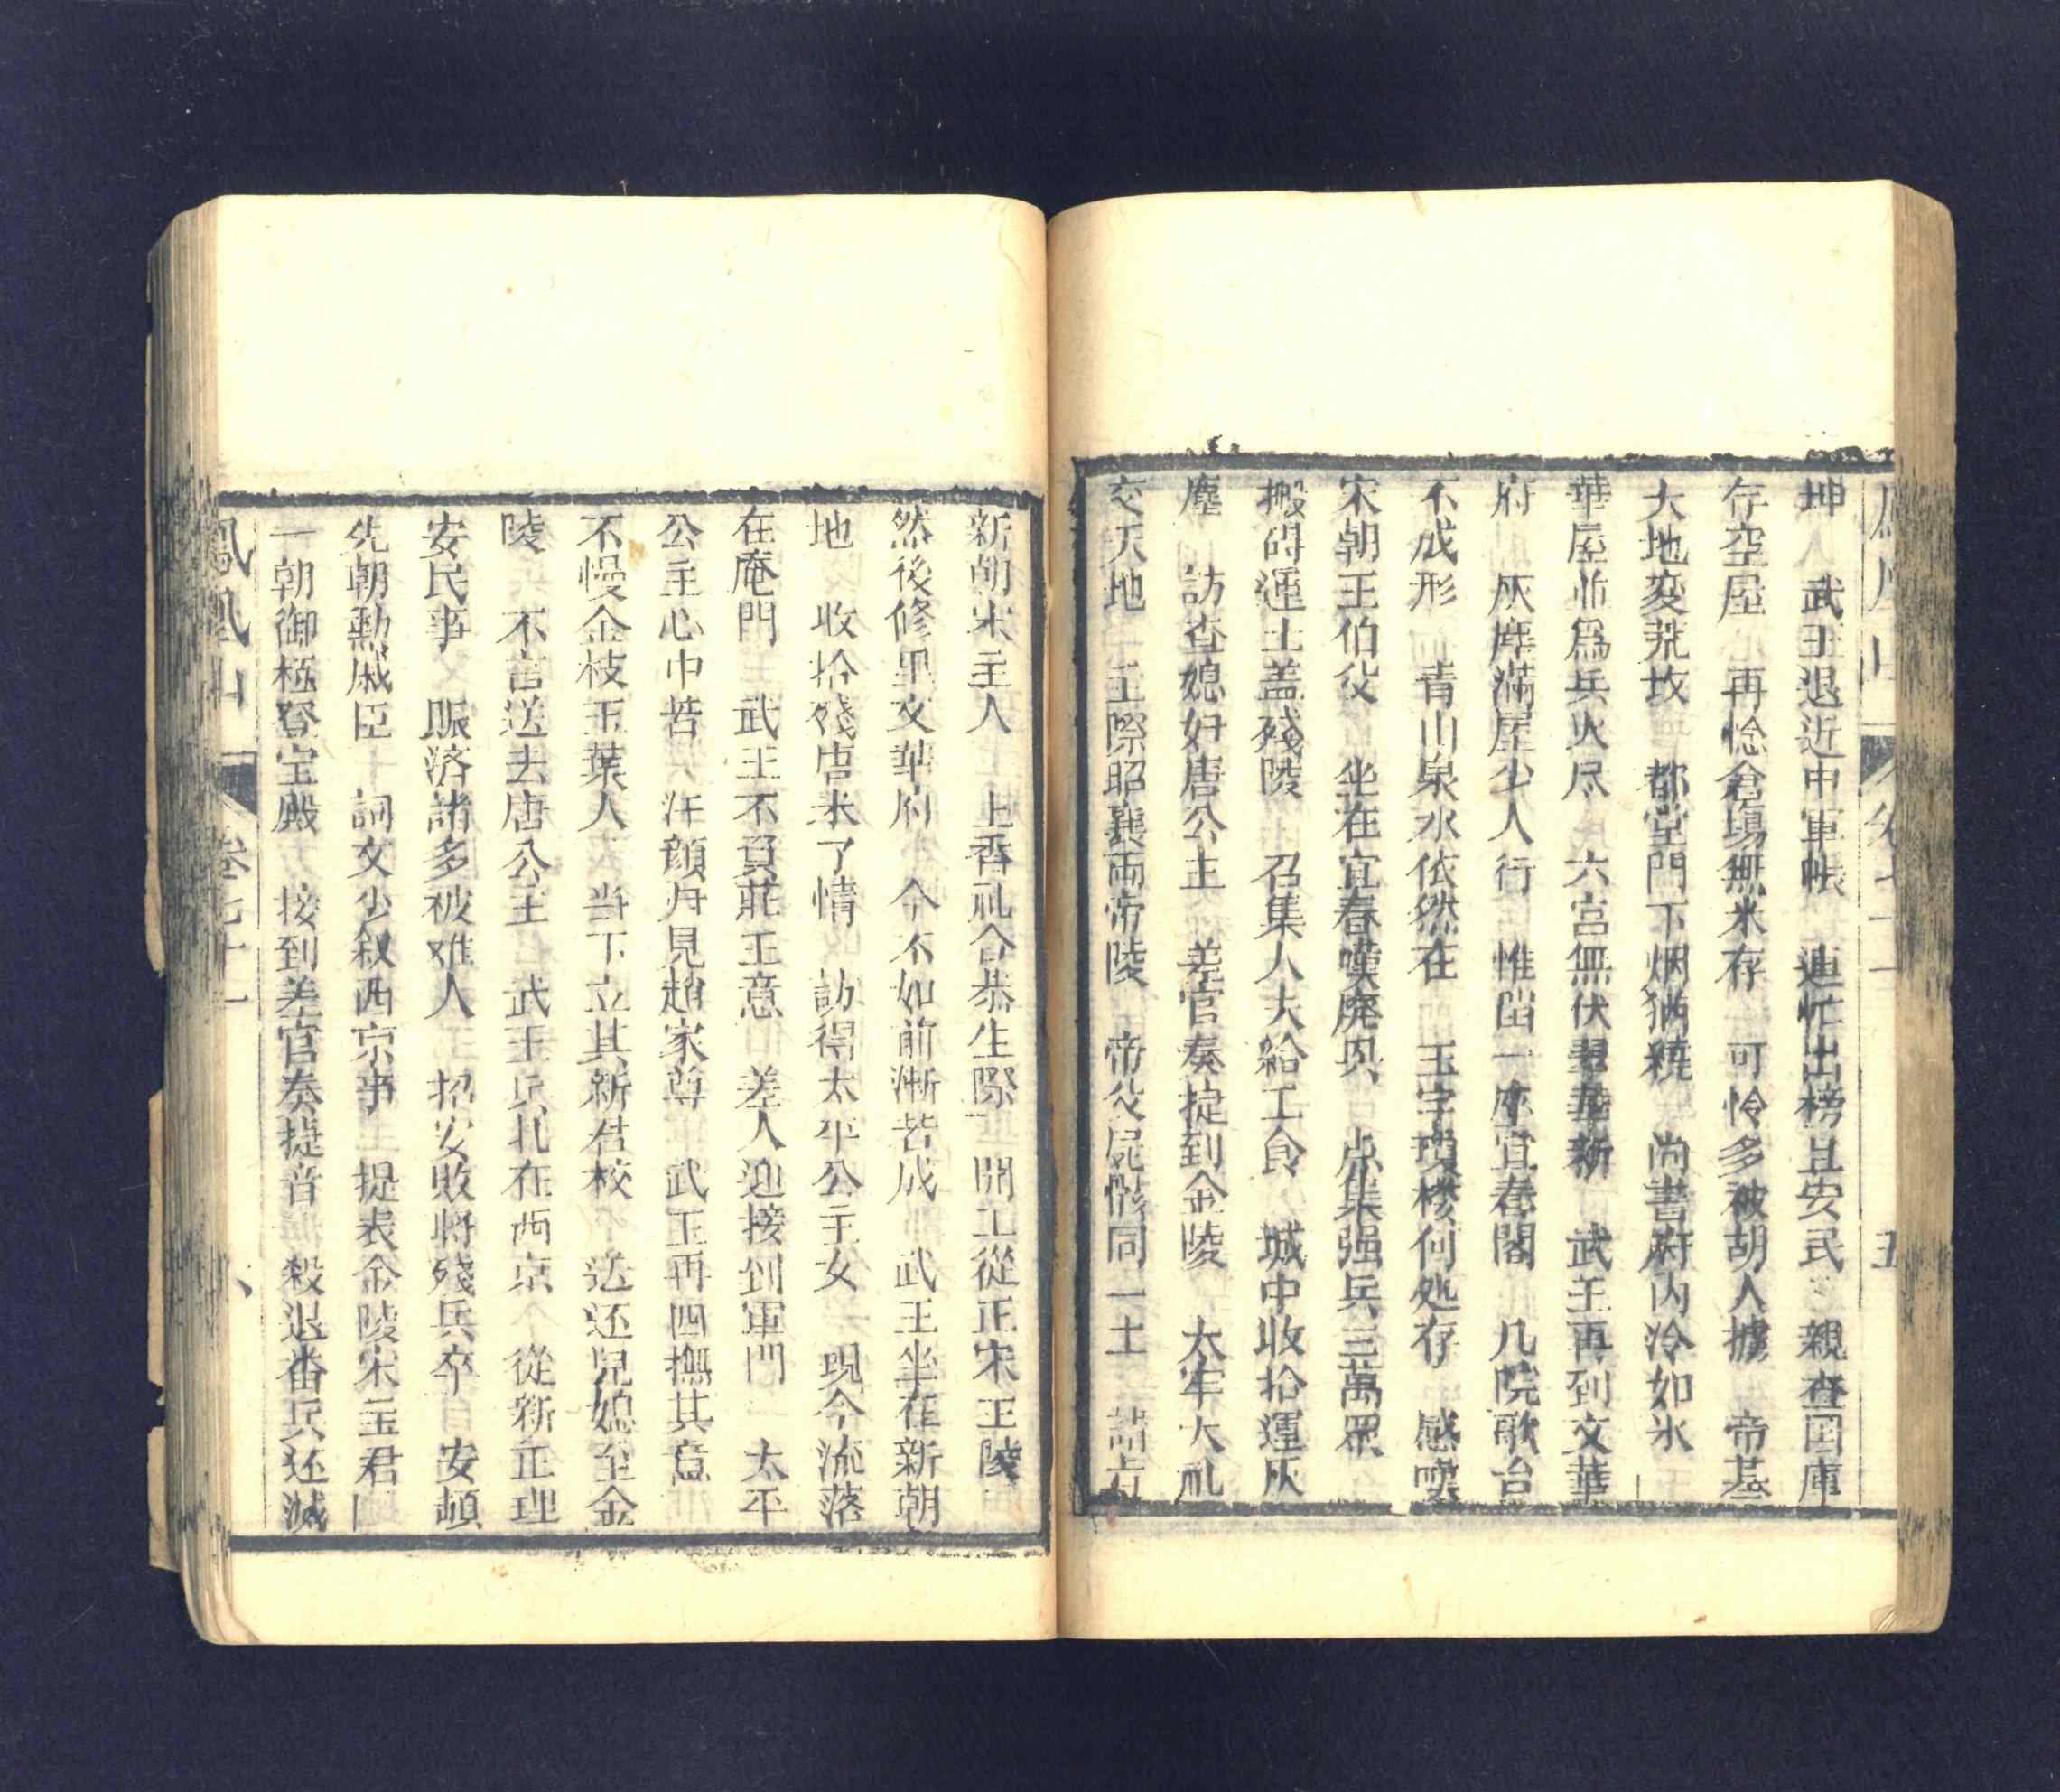 坤　武王退近中軍帳　連忙出榜且安民　親查囯庫
存空屋　再惗倉場無米存　可怜多被胡人擄　帝基
大地変荒坟　都堂門下烟猶繞　尚書府内冷如氷
華屋並爲兵火尽　六宫無伏翠華新　武王再到文華
府　灰塵滿屋少人行　惟留一座宜春閣　几院歌台
不成形　青山泉水依然在　玉宇瓊楼何処存　感嘆
宋朝王伯父　坐在宜春嘆廃興　点集强兵三萬眾
搬磚運土盖殘陵　召集人夫給工食　城中收拾運灰
塵　訪查媳妇唐公主　差官奏捷到金陵　太牢大礼
交天地　王際昭襄兩帝陵　帝父屍骸同一土
新朝宋主人　上香礼合恭生際　開工從正宋王陵
然後修里文華府　今不如前漸若成　武王坐在新朝
地　收拾殘唐未了情　訪得太平公主女　現今流落
在庵門　武王不負莊王意　差人迎接到軍門　太平
公主心中苦　汗顔再見趙家尊　武王再四撫其意
不慢金枝玉葉人　当下立其新君校　送还兒媳至金
陵　不言送去唐公主　武王兵扎在西京　從新正理
安民事　賑济諸多被难人　招安敗將殘兵卒　安頓
先朝勳戚臣　詞文少叙西京事　提表金陵宋主君
一朝御極登宝殿　接到差官奏捷音　殺退番兵还滅
鳳凰山　卷七十一　八